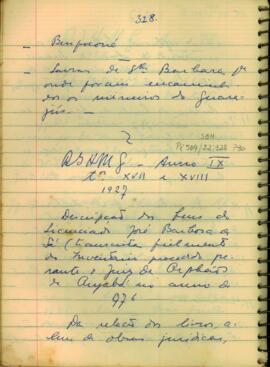 328.
- Benfeitoria
- Lavras de Sta Barbara pa
onde foram encaminha
dos os mineiros do Guara-
2
SBH
PI SBH/22:328 P30
RSHMG - Anno IX
ts. XVII e XVIII
1927
Descripção dos bens do
Licenciado José Barbosa de
Sá (transcripta fielmente
do Inventario procedido pe-
rante o Juiz de Orphãos
de Cuyabá no anno de
1776
Da relação dos livros, a-
lem de obras juridicas,